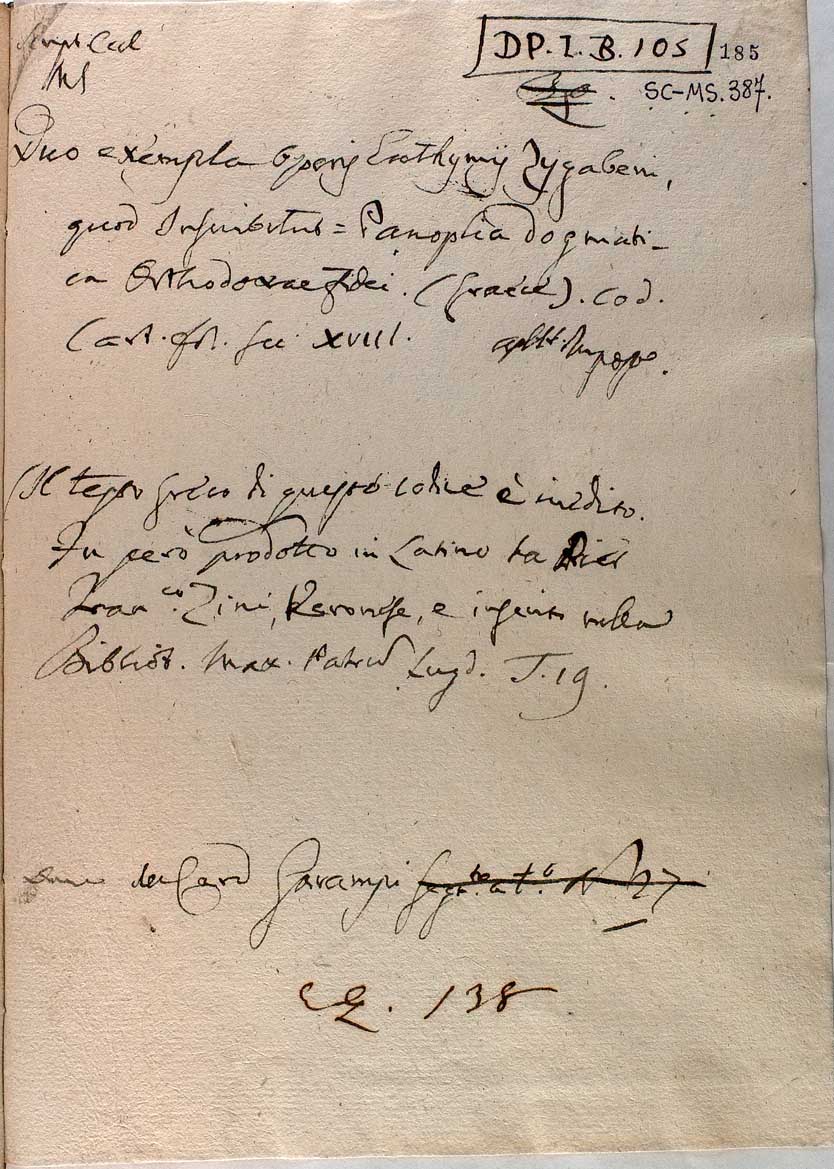 Script. Eccl.
MS
DP. I. B. 105
185
SC-MS. 387.
Duo exempla Operis Euthymij Zygabeni,
quod Inscribitur = Panoplia dogmati-
ca Orthodoxae Fidei. (Graece). Cod.
Cart. fol. sec. XVIII.
Il testo Greco di questo codice è inedito.
Fu però prodotto in Latino da Pier
Franco. Zini, Veronese, e inserito nella
Bibliot. Max. Patrum Lugd. T. 19.
del Card Garampi segnato N. 27
138